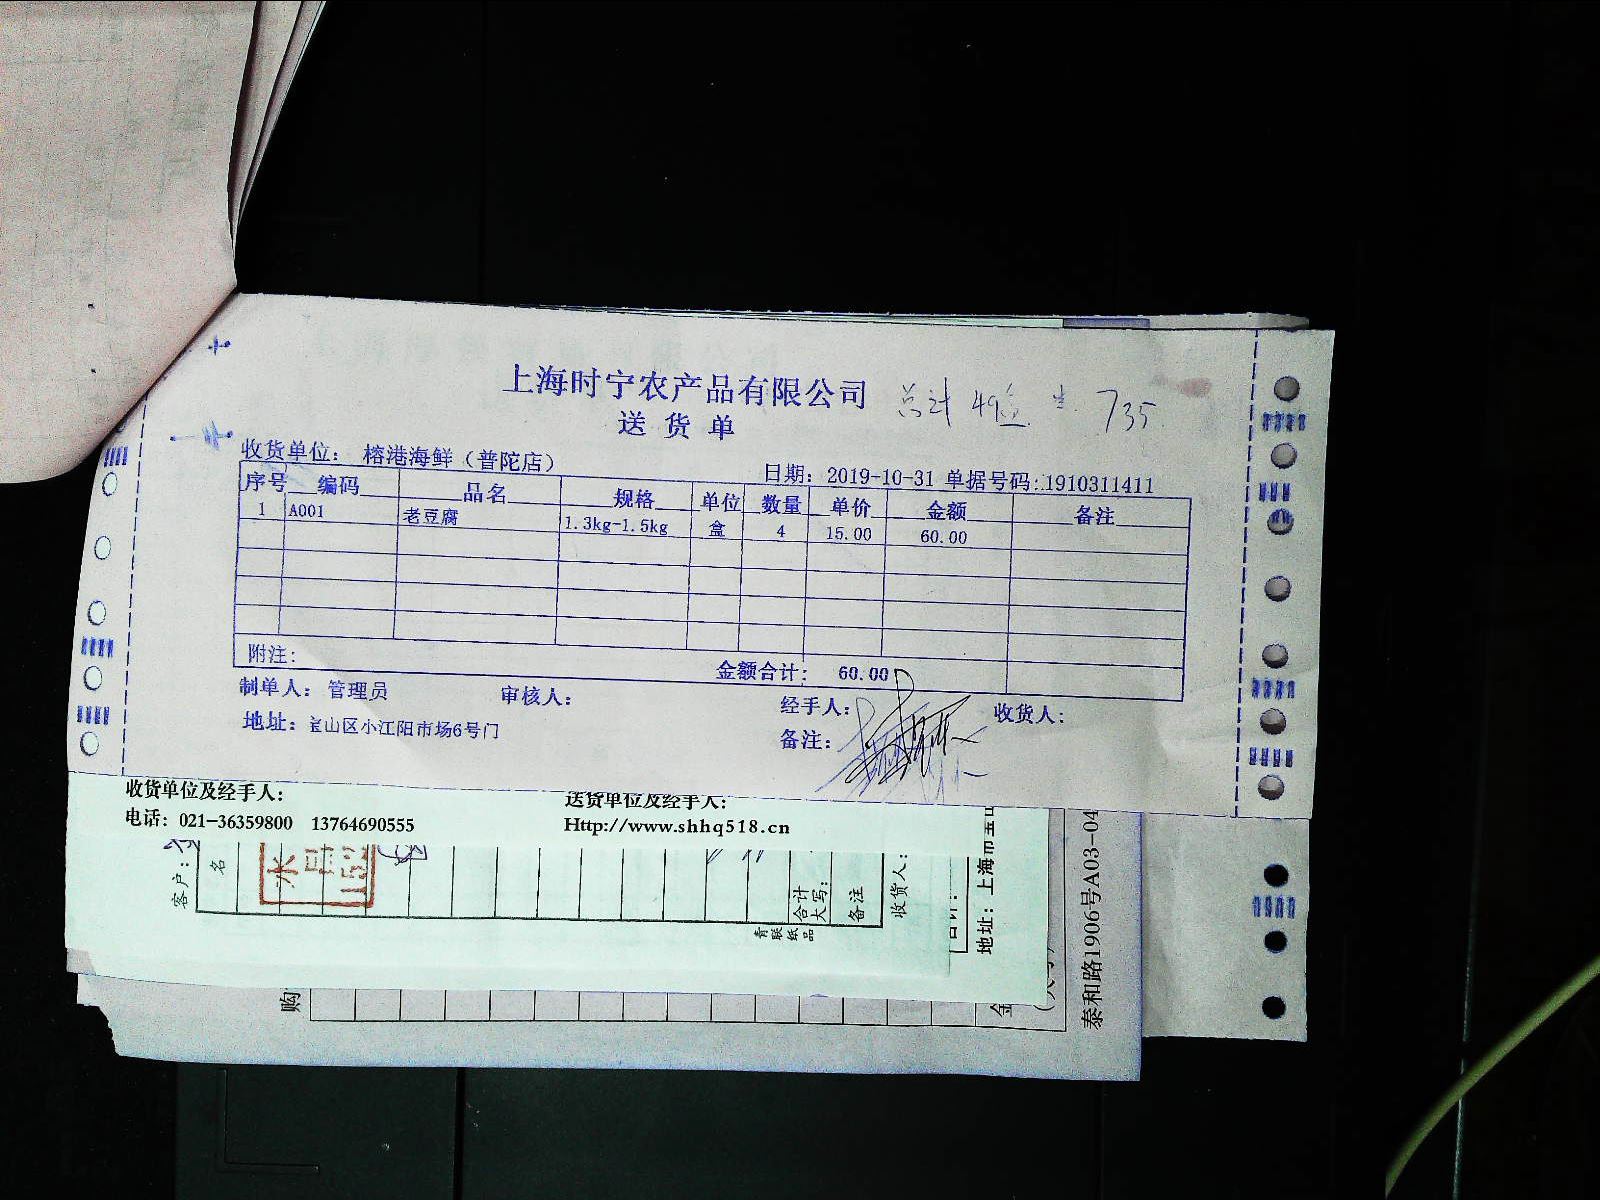 上海时宁农产品有限公司 总计 49盒 735
送 货 单
收货单位： 榕港海鲜（普陀店） 日期： 2019-10-31 单据号码:.1910311411
序号 编码 品名 规格 单位 数量 单价 金额 备注
1 A001 老豆腐 1.3kg-1.5kg 盒 4 15.00 60.00
附注： 金额合计： 60.00
制单人： 管理员 审核人： 经手人： 收货人：
地址： 宝山区小江阳市场6号门 备注：
收货单位及经手人： 送货单位及经手人：
电话：021-36359800 13764690555 Http://www.shhq518.cn
客户：
名
合计
大写：
备注
收货人：
青联纸品
合计：
地址：上海市
购
金
泰和路1906号A03-04